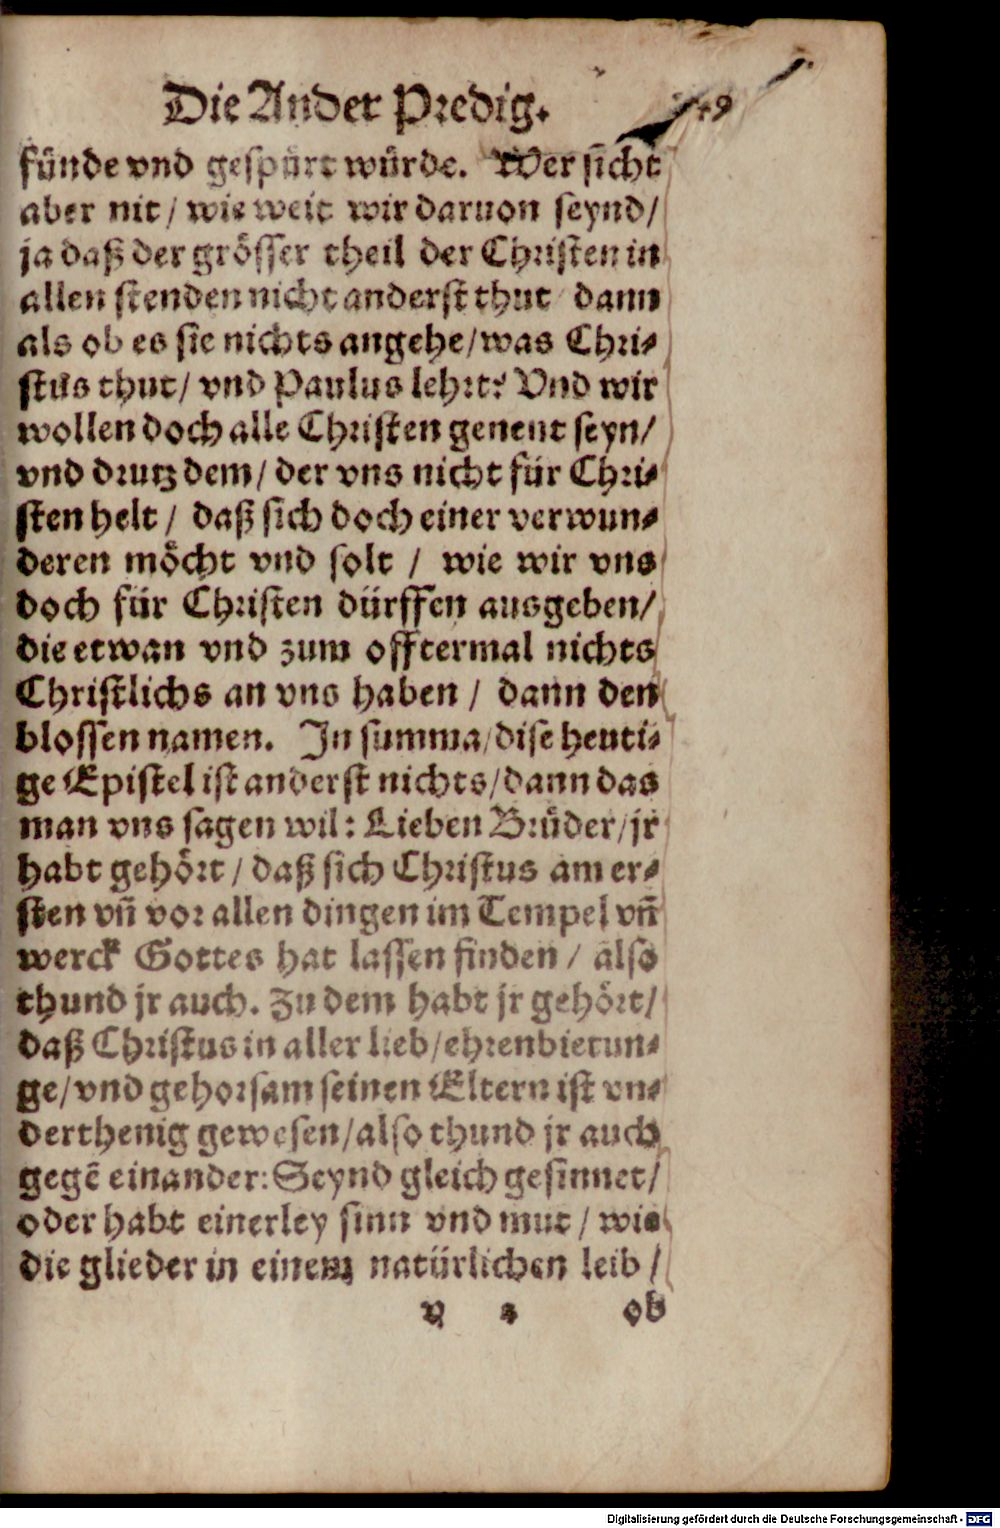 Die Ander Predig. 49
fünde vnd gespürt würde. Wer sicht
aber nit / wie weit wir daruon seynd /
ja daß der grösser theil der Christen in
allen stenden nicht anderst thut / dann
als ob es sie nichts angehe / was Chri-
stus thut / vnd Paulus lehrt? Vnd wir
wollen doch alle Christen genent seyn /
vnd drutz dem / der vns nicht für Chri-
sten helt / daß sich doch einer verwun-
deren möcht vnd solt / wie wir vns
doch für Christen dürffen ausgeben /
die etwan vnd zum offtermal nichts
Christlichs an vns haben / dann den
blossen namen. In summa / dise heuti-
ge Epistel ist anderst nichts / dann das
man vns sagen wil: Lieben Brüder / jr
habt gehört / daß sich Christus am er-
sten vñ vor allen dingen im Tempel vñ
werck Gottes hat lassen finden / also
thund jr auch. Zu dem habt jr gehört /
daß Christus in aller lieb / ehrenbietun-
ge / vnd gehorsam seinen Eltern ist vn-
derthenig gewesen / also thund jr auch
gegē einander: Seynd gleich gesinnet /
oder habt einerley sinn vnd mut / wie
die glieder in einem natürlichen leib /
ob
Digitalisierung gefördert durch die Deutsche Forschungsgemeinschaft - DFG